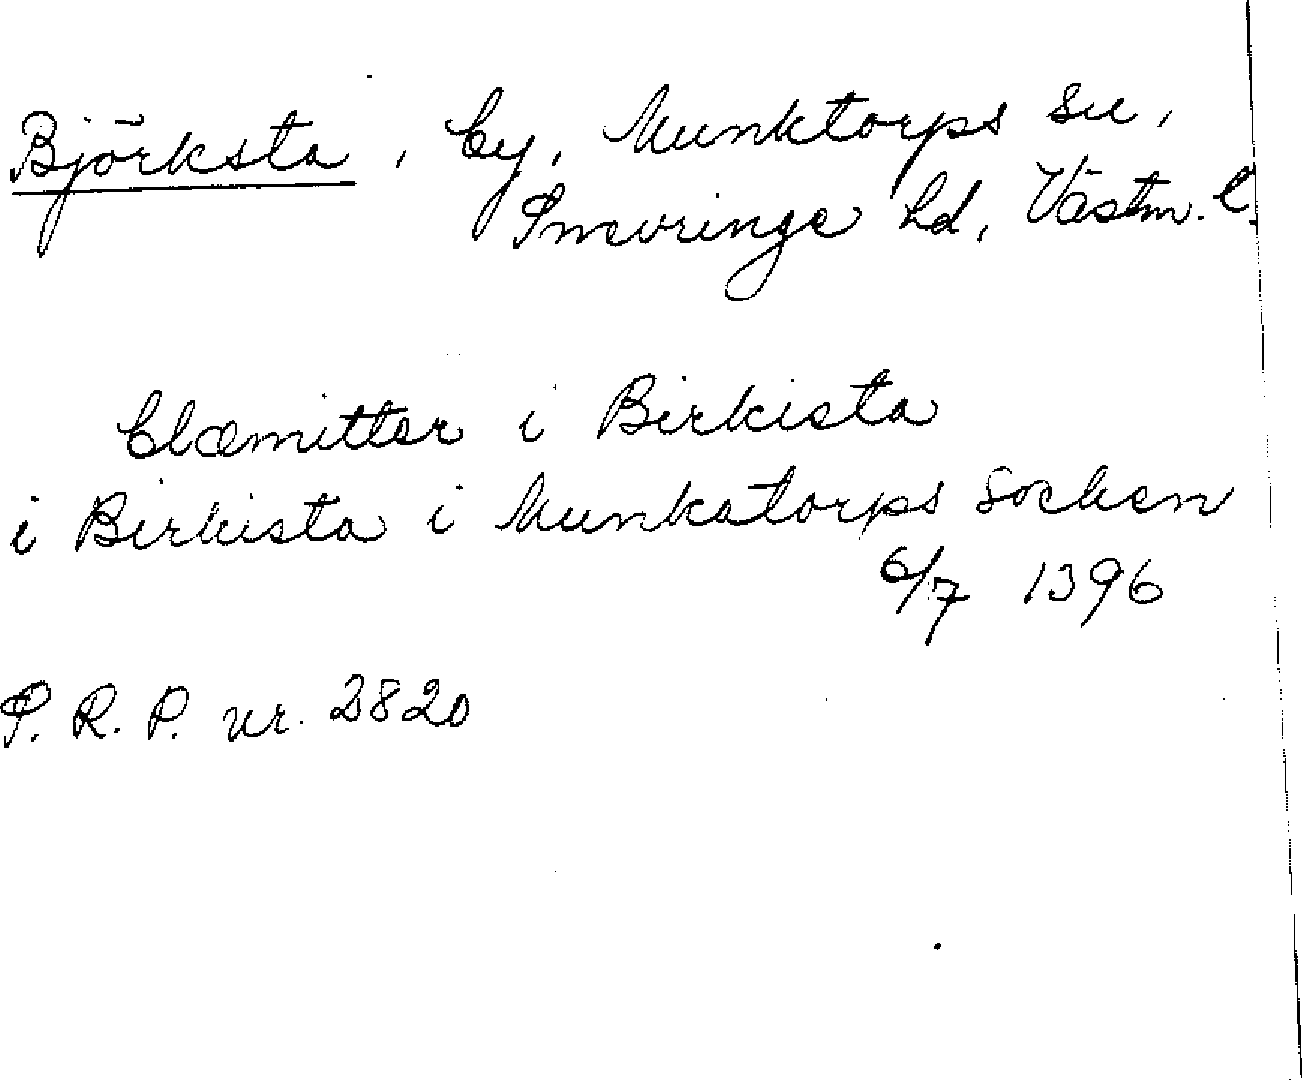 Björksta, by, Munktorps sn,
Snevringe hd, Västm. l.
Clæmitter i Birkista
i Birkista i Munkatorps socken
6/7 1396
S. R. P. nr. 2820